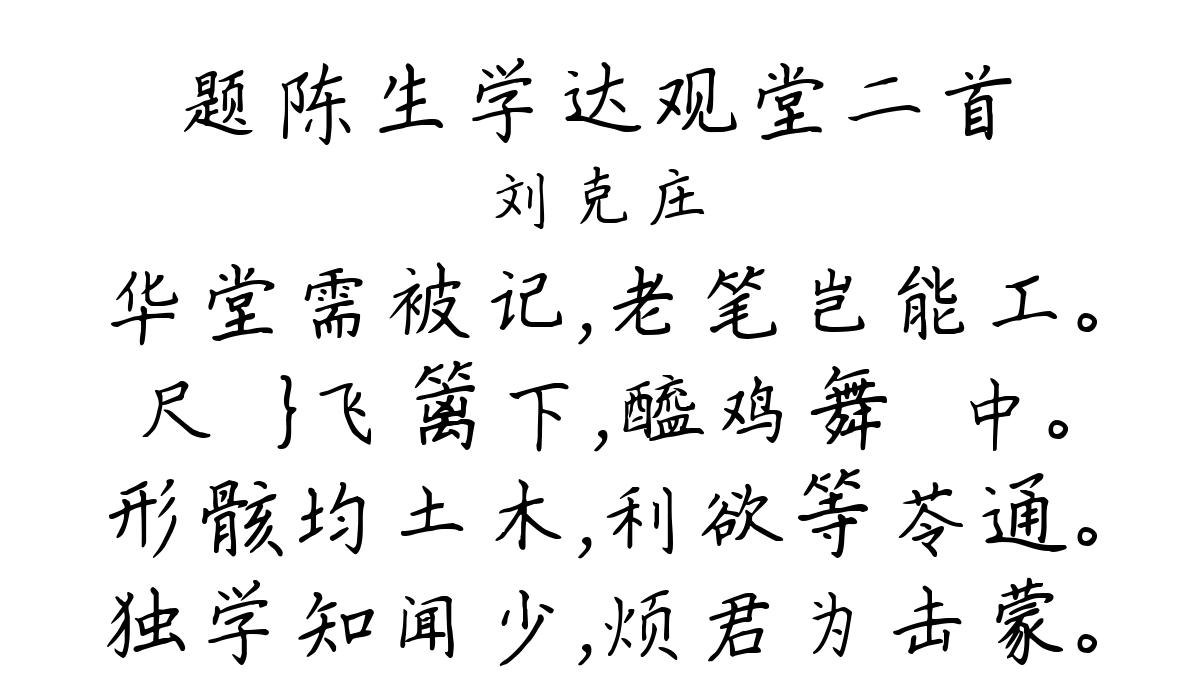 题陈生学达观堂二首
刘克庄
华堂需被记,老笔岂能工。
尺 }飞篱下,醯鸡舞 中。
形骸均土木,利欲等苓通。
独学知闻少,烦君为击蒙。